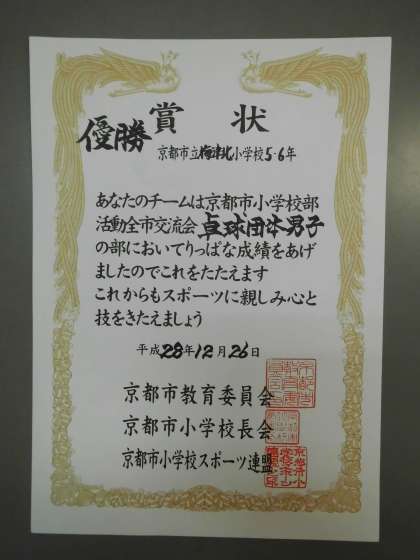 賞状
優勝
京都市立梅津北小学校5・6年
あなたのチームは京都市小学校部
活動全市交流会卓球団体男子
の部においてりっぱな成績をあげ
ましたのでこれをたたえます
これからもスポーツに親しみ心と
技をきたえましょう
平成28年12月26日
京都市教育委員会
京都市小学校長会
京都市小学校スポーツ連盟